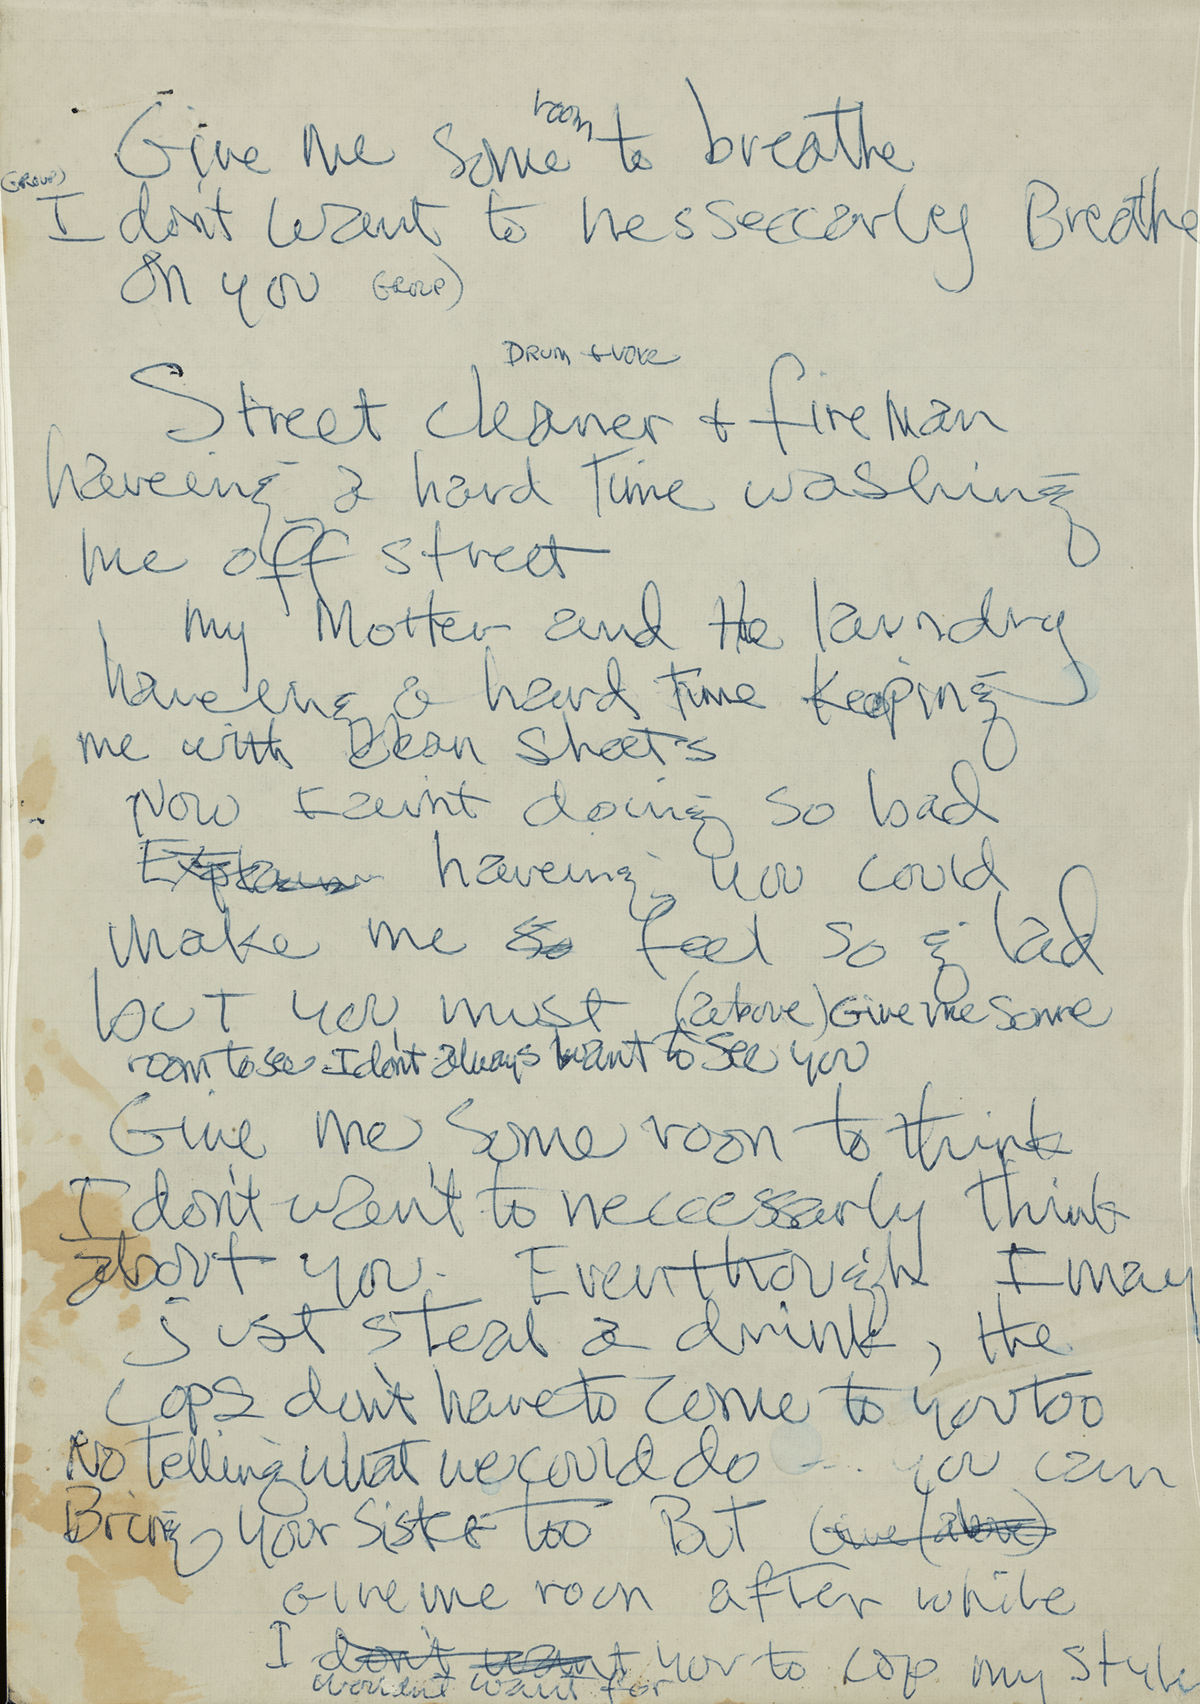 room
Give me some to breathe
(GROUP)
I don't want to nesseccarly Breathe
on you GROUP)
DRUM + voice
Street cleaner + fireman
haveing a hard time washing
me off street
my Mother and the laundry
haveing a hard time keeping
me with clean sheets
Now I aint doing so bad
Explain haveing you could
make me so feel so glad
but you must (above) Give me some
room to see I don't always want to see you
Give me some room to think
I don't wan't to neccessarly think
about you. Eventhough I may
just steal a drink, the
cops don't have to come to you too
No telling what we could do -... you can
Bring your sister too But Give (above)
Give me room after while
I don't want you to cop my style
wouldnt want for